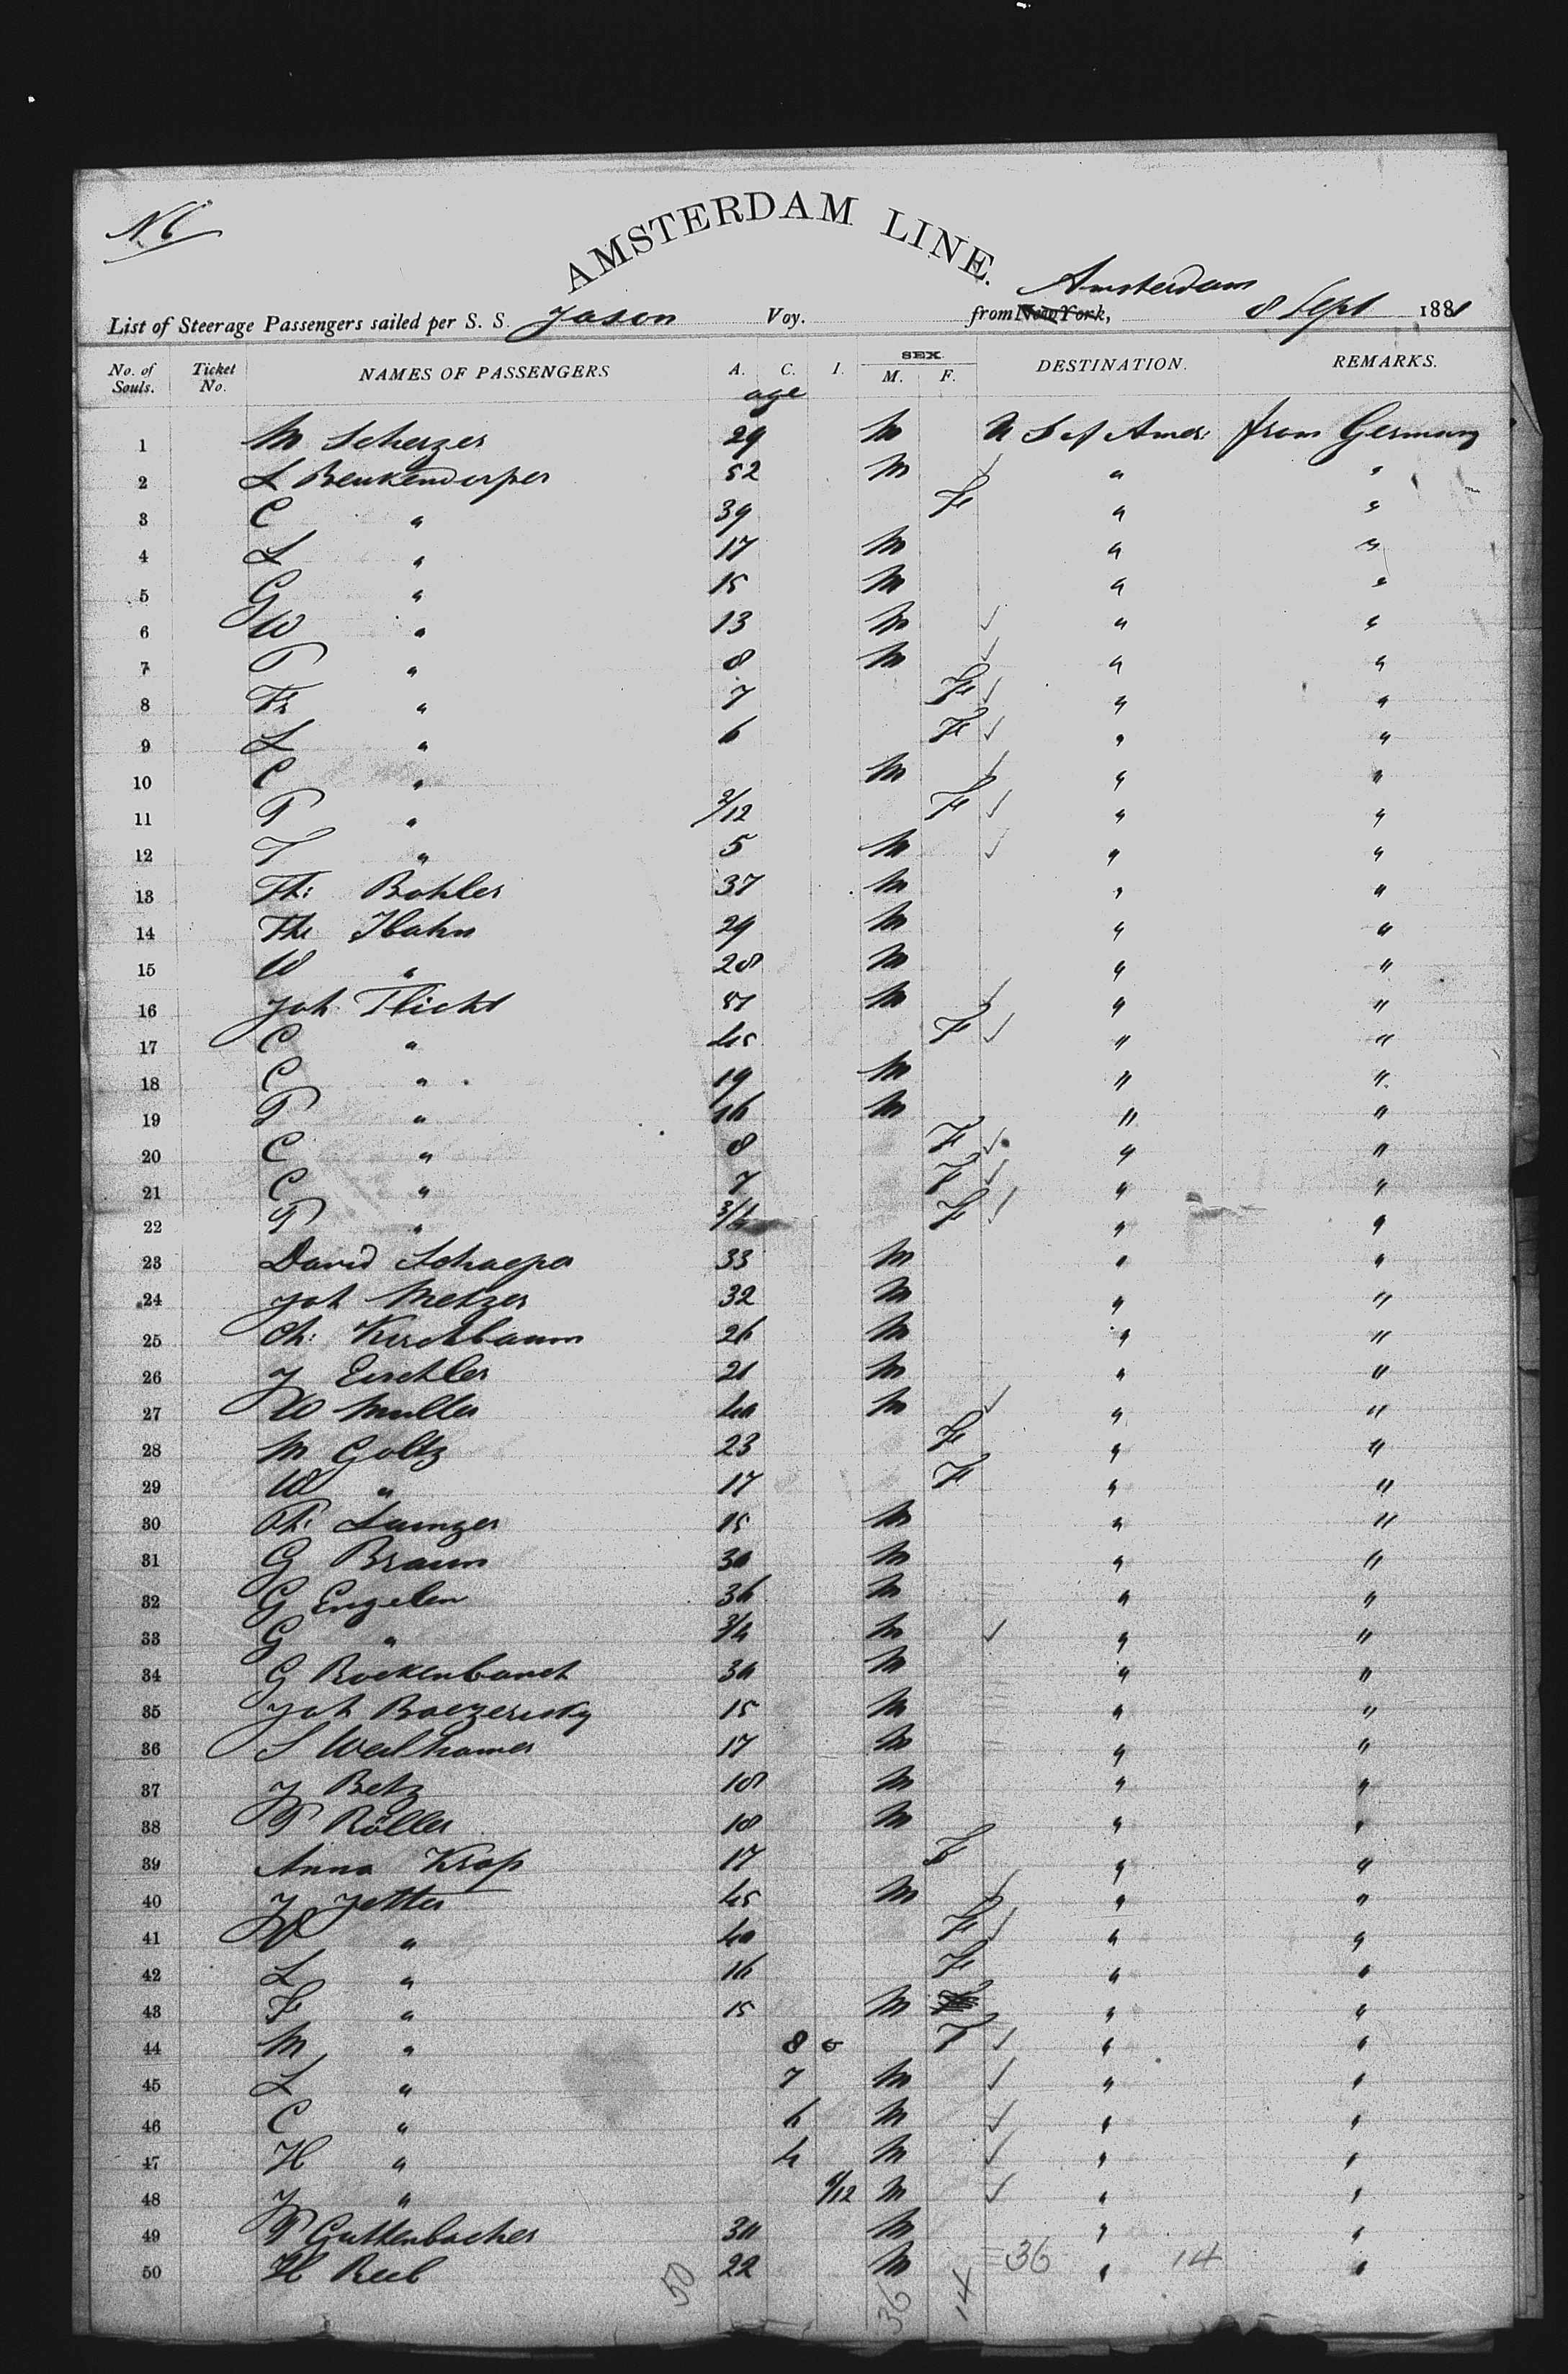 N 6
AMSTERDAM LINE.
Amsterdam
List of Steerage Passengers sailed per S. S. Jason Voy. from New York, 8 Sept 1881
No. of Souls. Ticket No. NAMES OF PASSENGERS A. C. I. SEX. M. F. DESTINATION. REMARKS.
age
1 M Scherzer 29 M U S of Amer: from Germany
2 L Beukendorfer 52 M ✓ " "
3 C " 39 F " "
4 L " 17 M " "
5 G " 15 M " "
6 W " 13 M ✓ " "
7 P " 8 M ✓ " "
8 Th " 7 F ✓ " "
9 L " 6 F ✓ " "
10 C " M ✓ " "
11 P " 2/12 F ✓ " "
12 T " 5 M ✓ " "
13 Th: Bohler 37 M " "
14 Th: Hahn 29 M " "
15 W " 28 M " "
16 Joh Flicht 51 M ✓ " "
17 C " 45 F ✓ " "
18 C " 19 M " "
19 P " 16 M " "
20 C " 8 F ✓ " "
21 C " 7 F ✓ " "
22 P " F ✓ " "
23 David Schaefer 33 M " "
24 Joh Metzer 32 M " "
25 Ch: Kirschbaum 26 M " "
26 J Eischler 21 M " "
27 W Muller 40 M ✓ " "
28 M Goltz 23 F " "
29 W " 17 F " "
30 Ph: 15 M " "
31 G Braun 30 M " "
32 G Engelen 36 M " "
33 G " 3/4 M ✓ " "
34 G Rockenbauch 30 M " "
35 Joh 15 M " "
36 S Weilhamer 17 M " "
37 J Betz 18 M " "
38 P Röller 18 M " "
39 Anna Krap 17 F " "
40 J Jetter 45 M ✓ " "
41 W " 40 F ✓ " "
42 L " 16 F " "
43 F " 15 M " "
44 M " 8 F ✓ " "
45 L " 7 M ✓ " "
46 C " 6 M ✓ " "
47 H " 4 M ✓ " "
48 J " M ✓ " "
49 P Guttenbacher 30 M " "
50 H Reeb 22 M = 36 " 14 "
50 36 14